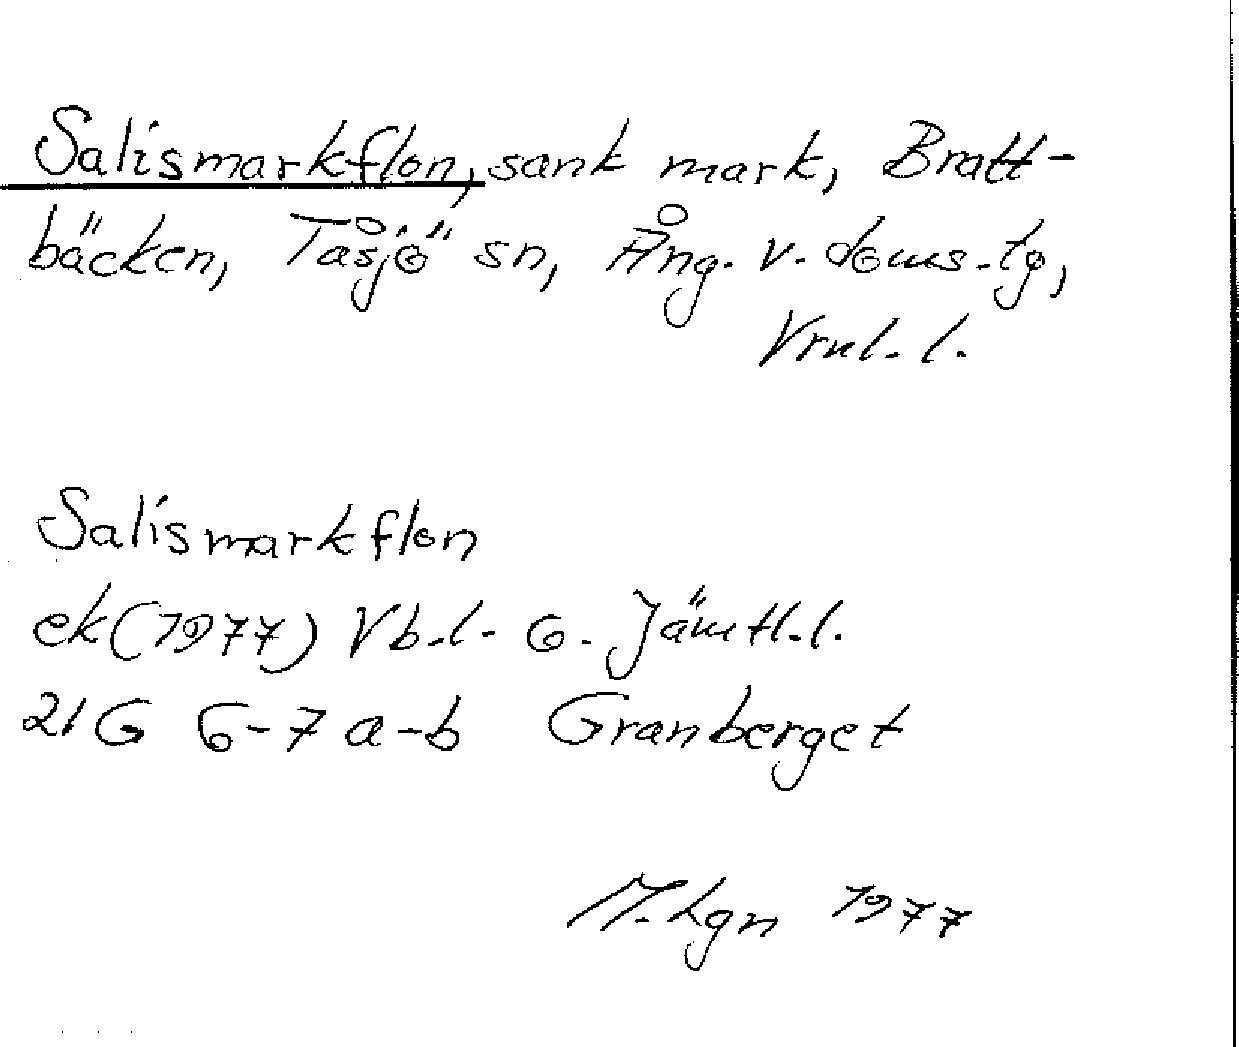 Salismarkflon, sank mark, Bratt-
bäcken, Tåsjö sn, Ång. v. doms.tg,
Vrnl. l.
Salismarkflon
ek (1977) Vb.l. o. Jämtl.l.
21G 6-7 a-b Granberget
M. Lgn 1977